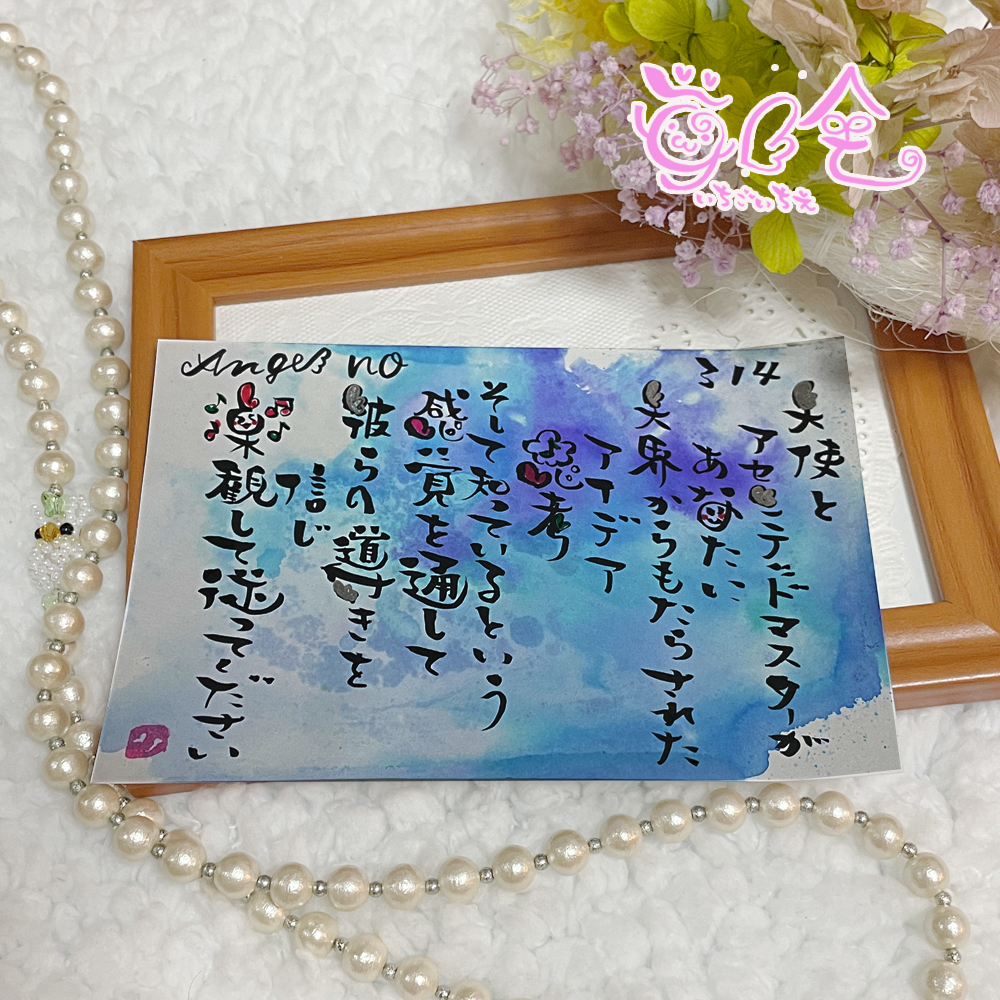 Angel no 314
天使と
アセンテッドマスターが
あなたに
天界からもたらされた
アイデア
思考
そして知っているという
感覚を通して
彼らの導きを
信じ
楽観して従ってください
いちごいちえ